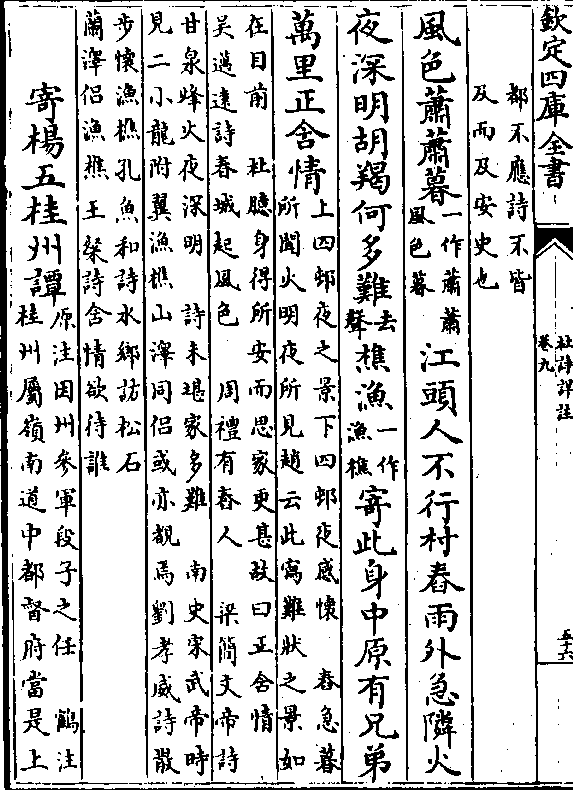 欽定四庫全書
杜詩詳註
卷九
五十六
都不應詩不皆
及而及安史也
風色蕭蕭暮
一作蕭蕭
風色暮
江頭人不行村舂雨外急隣火
夜深明胡羯何多難
去
聲
樵漁
一作
漁樵
寄此身中原有兄弟
萬里正含情
上四邨夜之景下四邨夜感懷 舂急暮
所聞火明夜所見趙云此寫難狀之景如
在目前 杜臆身得所安而思家更甚故曰正含情
吳邁遠詩春城起風色 周禮有舂人 梁簡文帝詩
甘泉烽火夜深明 詩未堪家多難 南史宋武帝時
見二小龍附翼漁樵山澤同侶或亦覩焉劉孝威詩散
步懷漁樵孔魚和詩水鄉訪松石
蘭澤侶漁樵 王粲詩含情欲待誰
寄楊五桂州譚
原注因州參軍段子之任 鶴注
桂州屬嶺南道中都督府當是上